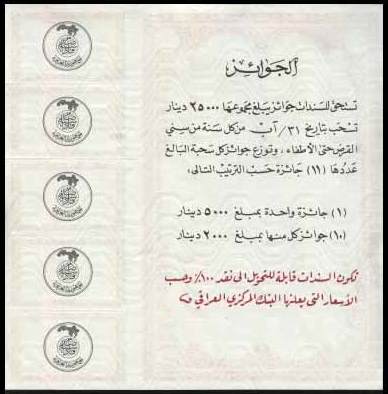 الجوائز
تستحق للسندات جوائز يبلغ مجموعها ٢٥٠٠٠ دينار
تسحب بتاريخ ٣١/ آب من كل سنة من سني
القرض حتى الأطفاء، وتوزع جوائز كل سحبة البالغ
عددها (١١) جائزة حسب الترتيب التالي:
(١) جائزة واحدة بمبلغ ٥٠٠٠ دينار
(١٠) جوائز كل منها بمبلغ ٢٠٠٠ دينار
تكون السندات قابلة للتحويل الى نقد ١٠٠٪ وحسب
الأسعار التي يعلنها البنك المركزي العراقي